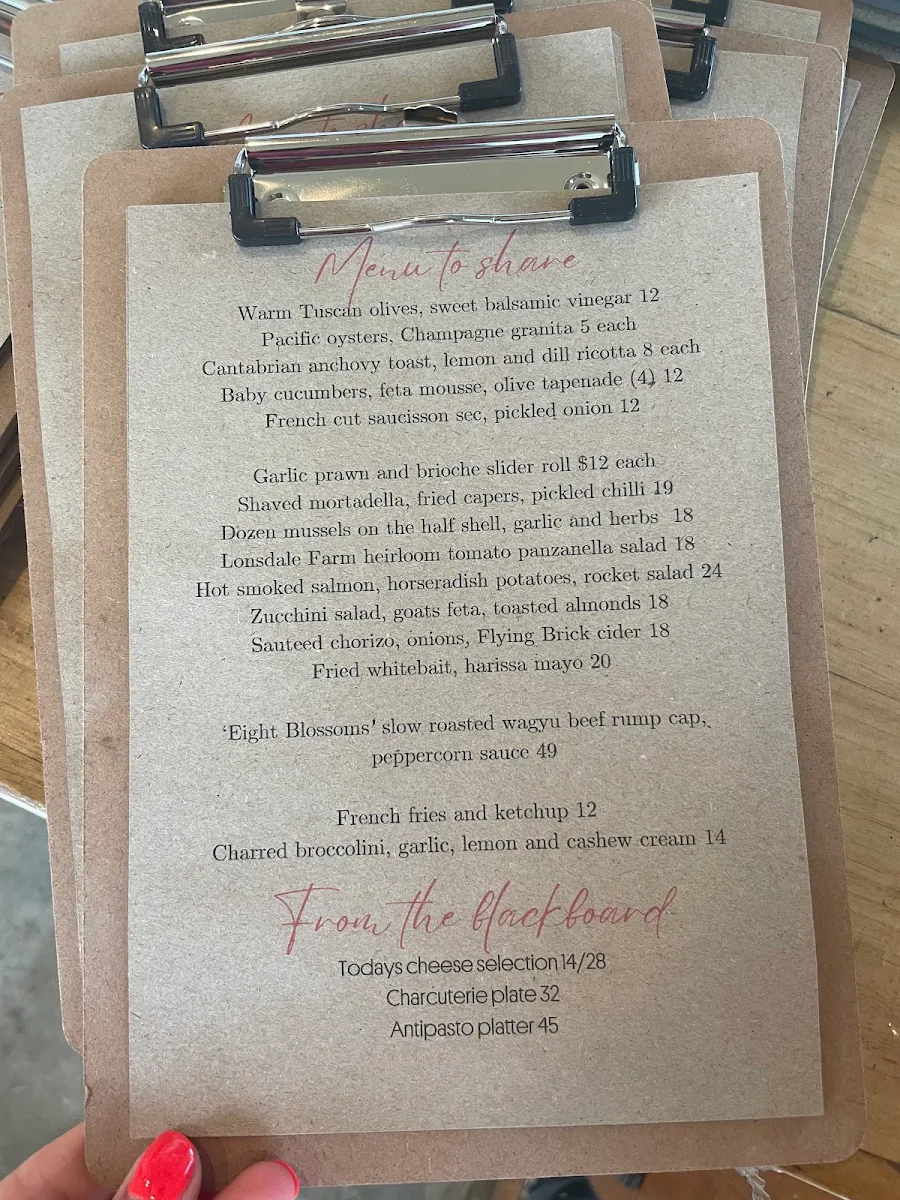 Menu to share
Warm Tuscan olives, sweet balsamic vinegar 12
Pacific oysters, Champagne granita 5 each
Cantabrian anchovy toast, lemon and dill ricotta 8 each
Baby cucumbers, feta mousse, olive tapenade (4) 12
French cut saucisson sec, pickled onion 12
Garlic prawn and brioche slider roll $12 each
Shaved mortadella, fried capers, pickled chilli 19
Dozen mussels on the half shell, garlic and herbs 18
Lonsdale Farm heirloom tomato panzanella salad 18
Hot smoked salmon, horseradish potatoes, rocket salad 24
Zucchini salad, goats feta, toasted almonds 18
Sauteed chorizo, onions, Flying Brick cider 18
Fried whitebait, harissa mayo 20
‘Eight Blossoms' slow roasted wagyu beef rump cap,
peppercorn sauce 49
French fries and ketchup 12
Charred broccolini, garlic, lemon and cashew cream 14
From the blackboard
Todays cheese selection 14/28
Charcuterie plate 32
Antipasto platter 45